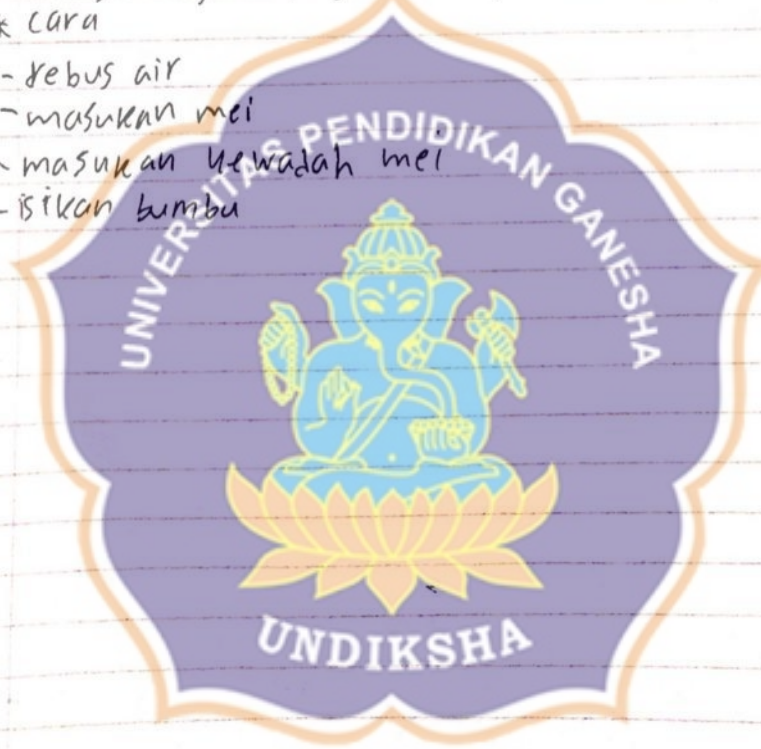 * cara
- rebus air
- masukan mei
- masukan kewadah mei
- isikan bumbu
UNIVERSITAS PENDIDIKAN GANESHA
UNDIKSHA